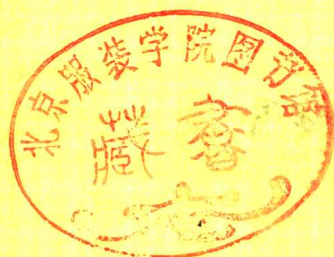 北京服装学院图书馆
藏书